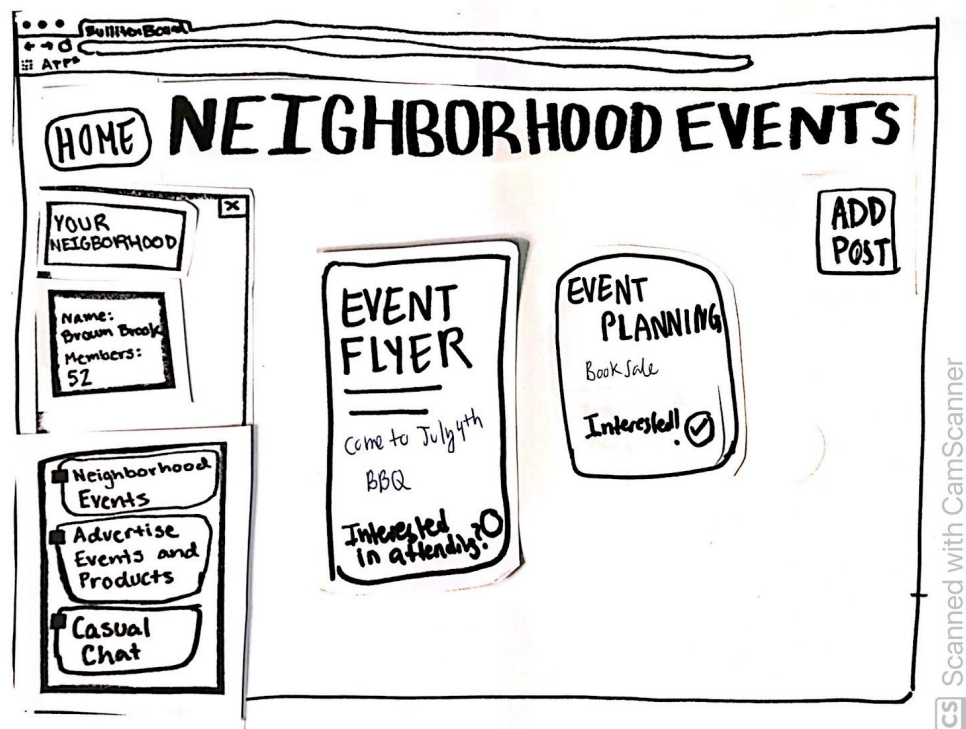 BullitorBoard
Apps
HOME
NEIGHBORHOOD EVENTS
ADD
POST
YOUR
NEIGBORHOOD
Name:
Brown Brook
Members:
52
Neighborhood
Events
Advertise
Events and
Products
Casual
Chat
EVENT
FLYER
Come to July 4th
BBQ
Interested
in attending?
EVENT
PLANNING
Book Sale
Interested!
CS Scanned with CamScanner